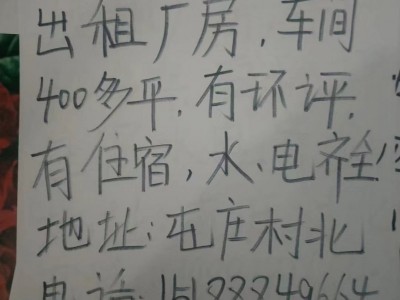 出租厂房,车间
400多平,有环评,
有住宿,水、电齐全
地址:屯庄村北
电话:15122249664